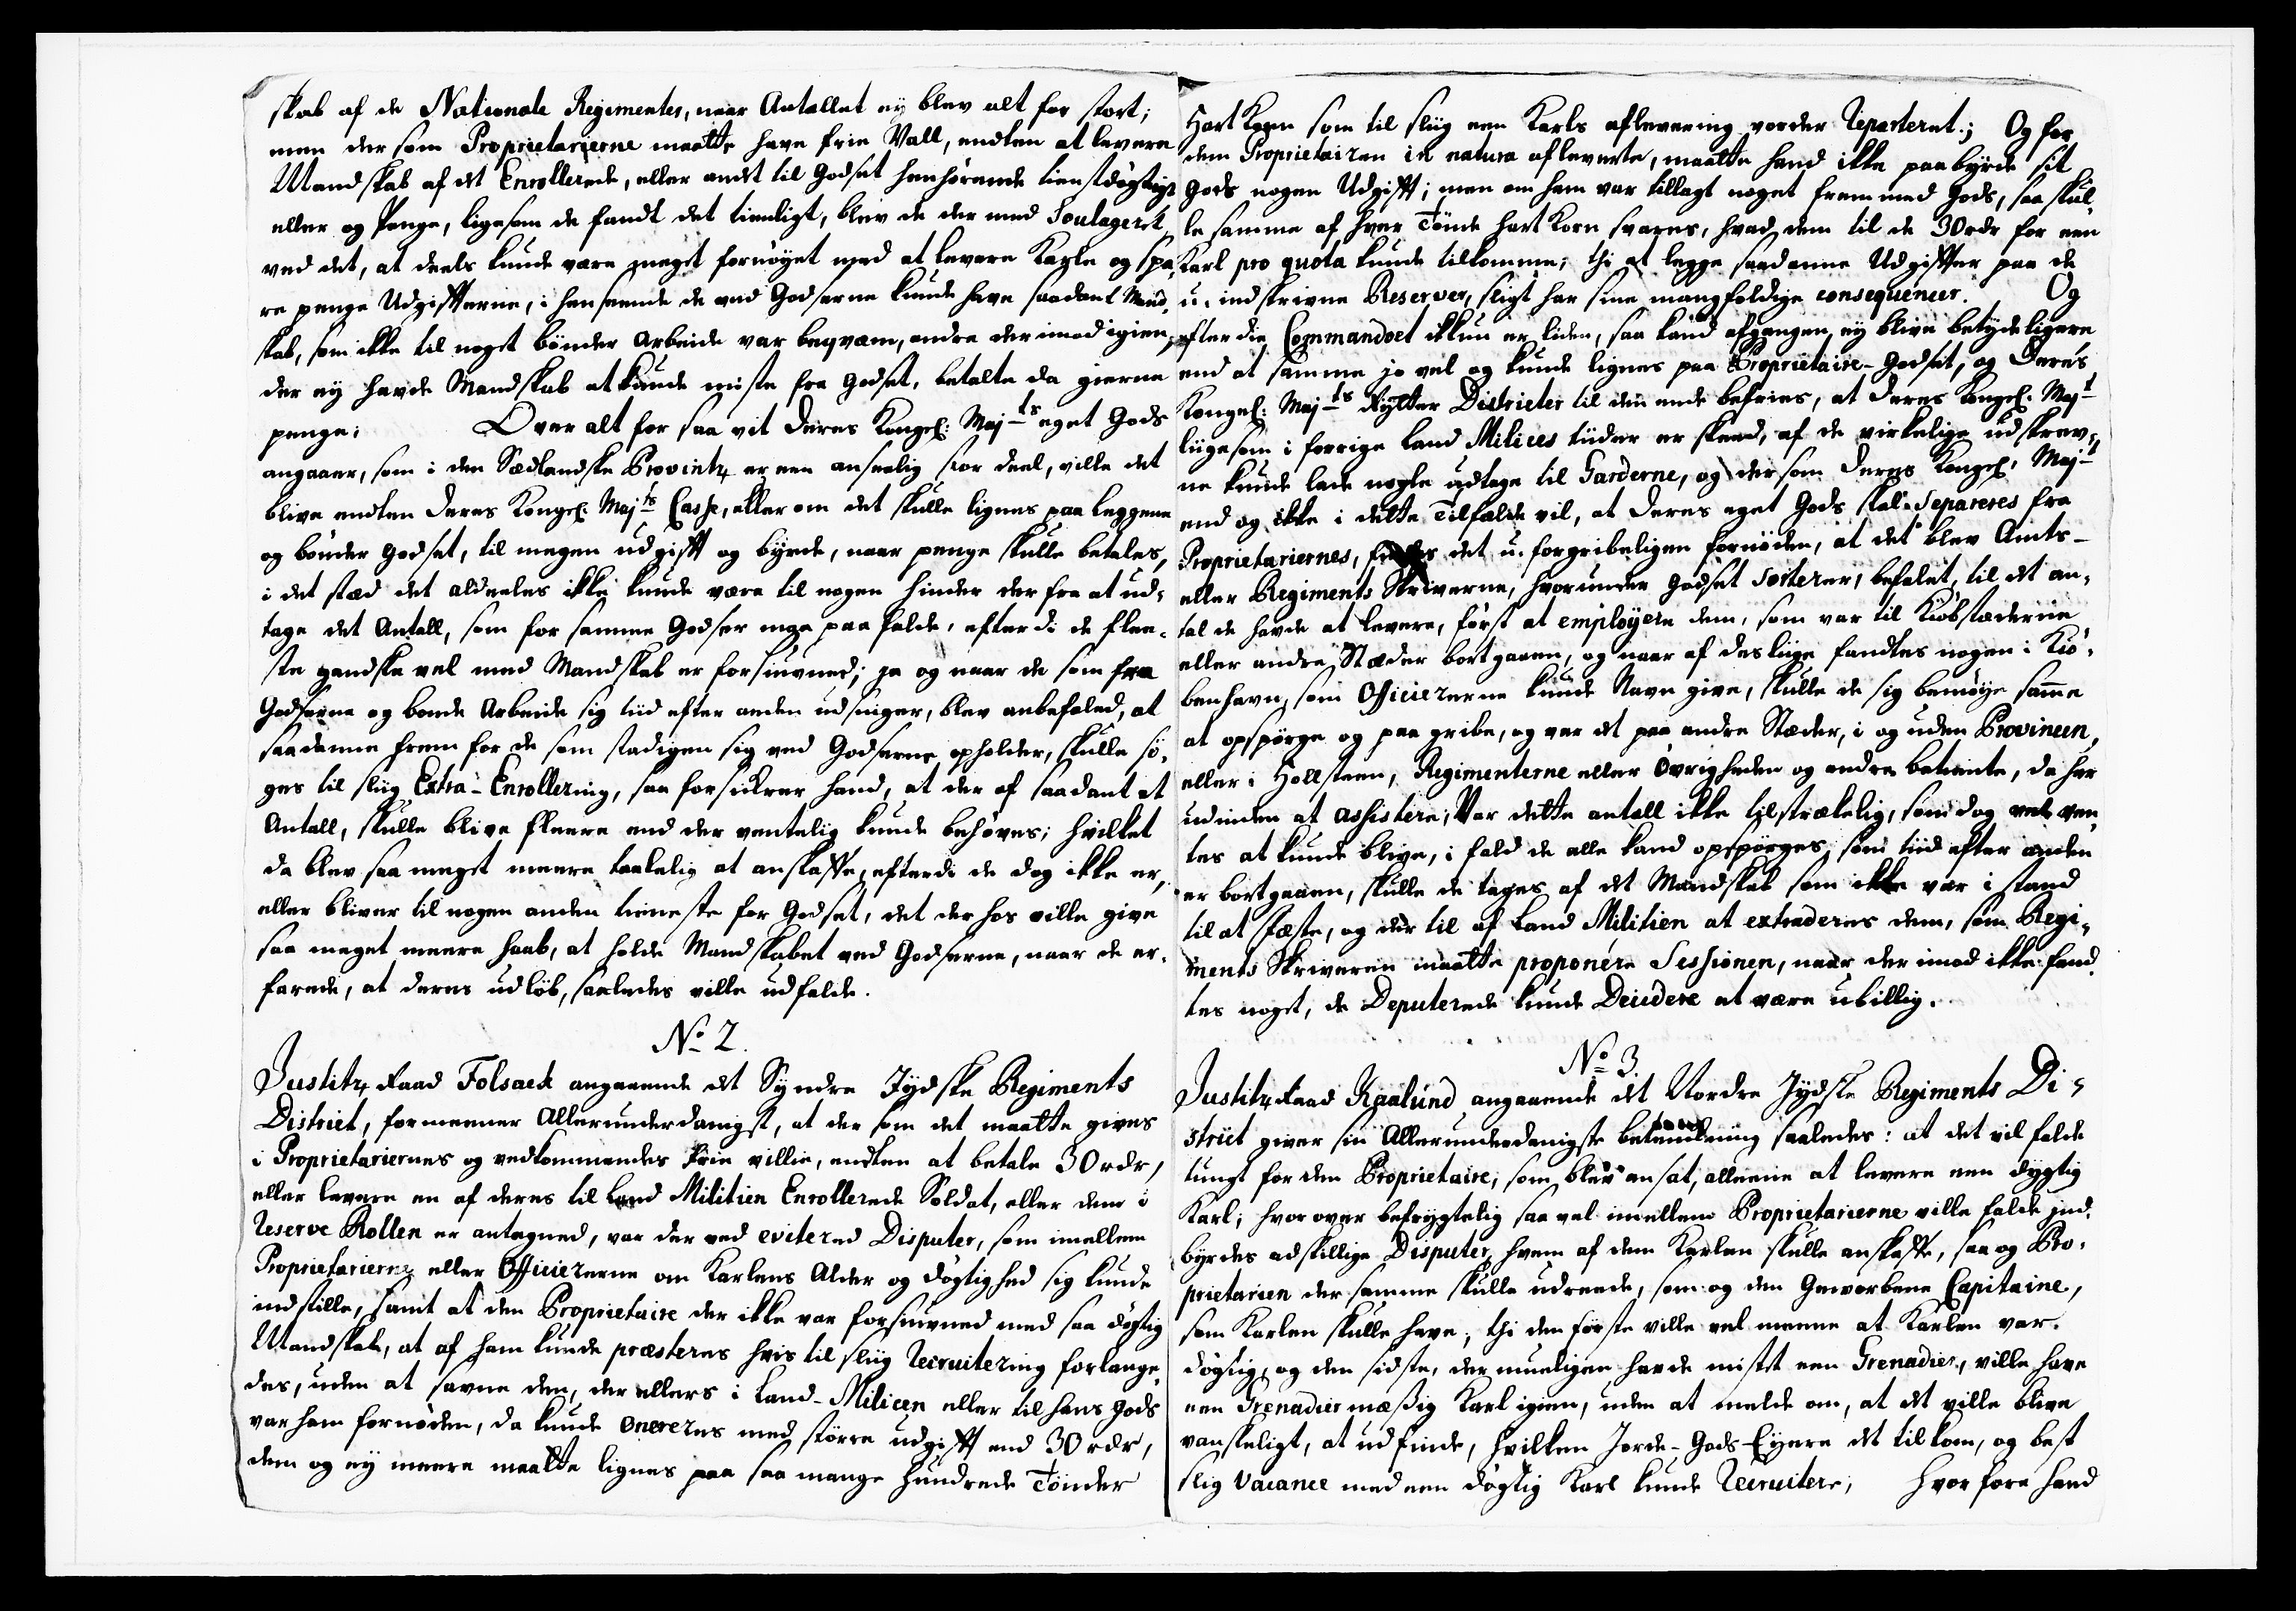 skab af de Nationale Regimenter, naar Antallet ey blev alt for stort;
men der som Proprietarierne maatte have frie Vall, endten at levere
Mandskab af det Enrollerede, eller andt til Godset henhørende tienstdøgtige
eller og Penge, ligesom de fandt det tienligt, blev de der med Soulagerit,
ved det, at deels kunde være meget fornøyet med at levere Karle og spa-
re penge Udgifterne, i henseende de ved Godserne kunde have saadant Mand-
skab, som ikke til noget bønder Arbeide var beqvæm, andre derimod igien,
der ey havde Mandskab at kunde miste fra Godset, betalte da gierne
penge; Over alt for saa vit Deres Kongel: Majts eget Gods
angaaer, som i den Sædlandske Provintz er een anseelig stor deel, ville det
blive endten Deres Kongel: Majts Casse, eller om det skulle lignes paa Leggene
og bønder Godset, til megen udgift og byrde, naar penge skulle betales,
i det stæd det aldeeles ikke kunde være til nogen hinder der fra at ud-
tage det Antall, som for samme Godser maa paa falde, efterdi de flee-
ste gandske vel med Mandskab er forsiunned; ja og naar de som fra
Godserne og bonde Arbeide sig tiid efter anden udsniger, blev anbefaled, at
saadanne frem for de som stadigen sig ved Godserne opholder, skulle sø-
ges til sliig Extra-Enrollering, saa forsikrer hand, at der af saadant et
Antall, skulle blive fleere end der ventelig kunde behøves; hvilket
da blev saa meget meere taalelig at anskaffe, efterdi de dog ikke er,
eller bliver til nogen anden tieneste for Godset, det der hos ville give
saa meget meere haab, at holde Mandskabet ved Godserne, naar de er-
farede, at deres udløb, saaledes ville udfalde.
No 2.
Justitz Raad Folsack angaaende det Syndre Jydske Regiments
District, formeener Allerunderdanigst, at der som det maatte gives
i Proprietariernes og vedkommendes frie villie, endten at betale 30 rdr,
eller levere en af deres til Land Militien Enrollerede Soldat, eller dem i
Reserve Rollen er antegned, var der ved evitered Disputer, som imellem
Proprietarierne eller Officiererne om Karlens Alder og døgtighed sig kunde
indstille, samt at den Proprietaire der ikke var forsiunned med saa døgtig
Mandskab, at af ham kunde præsteres hvis til sliig Recruitering forlange-
des, uden at savne den, der ellers i Land-Milicen eller til hans Gods
var ham fornøden, da kunde onereres med større udgift end 30 rdr,
dem og ey meere maatte lignes paa saa mange hundrede Tønder
Hart Korn som til sliig een Karls aflevering vorder Reparteret; Og for
dem Proprietairen in natura afleverte, maatte hand ikke paabyrde sit
Gods nogen Udgift; men om ham var tillagt noget fremmed Gods, saa skul-
le samme af hver Tønde hart Korn svares, hvad dem til de 30 rdr for een
Karl pro quota kunde tilkomme; thi at legge saadanne Udgifter paa de
u-indskrevne Reserver, sligt har sine mangfoldige consequencer. Og
efterdie Commandoet ikkun er liden, saa kand afgangen ey blive betydeligere
end at samme jo vel og kunde lignes paa Proprietaire-Godset, og Deres
Kongel: Majts Rytter Districter til den ende befries, at Deres Kongel: Majt
liigesom i forrige Land Milices tiider er skeed, af de virkelige udskrev-
ne kunde lade nogle udtage til Garderne, og der som Deres Kongel: Majt
end og ikke i dette Tilfælde vil, at Deres eget Gods skal Separeres fra
Proprietariernes, det u-forgribeligen fornøden, at det blev Amts-
eller Regiments Skriverne, hvorunder Godset Sorterer, befalet, til det an-
tal de havde at levere, først at employere dem, som var til Kiøbstæderne
eller andre Stæder bortgaaen, og naar af desliige fandtes nogen i Kiø-
benhavn, som Officiererne kunde Navn give, skulle de sig bemøye samme
at opspørge og paagribe, og var det paa andre Stæder, i og uden Provincen,
eller i Hollsteen, Regimenterne eller Øvrigheden og andre betiente, da her
udinden at assistere; Var dette antall ikke tilstrækelig, som dog vel ven-
tes at kunde blive, i fald de alle kand opspørges, som tiid efter anden
er bortgaaen, skulle de tages af det Mandskab som ikke var i stand
til at fæste, og der til af Land Militien at extraderes dem, som Regi-
ments Skriveren maatte proponere Sessionen, naar der imod ikke fand-
tes noget, de Deputerede kunde Decidere at være ubillig.
No 3.
Justitz Raad Raalund angaaende det Nordre Jydske Regiments Di-
strict giver sin Allerunderdanigste betænkning saaledes: at det vil falde
tungt for den Proprietaire, som blev ansat, alleene at levere een dygtig
Karl; hvor over befrygtelig saa vel imellem Proprietarierne ville falde ind-
byrdes adskillige Disputer, hvem af dem Karlen skulle anskaffe, saa og Pro-
prietarien der samme skulle udreede, som og den Geworbene Capitaine,
som Karlen skulle have, thi den første ville vel meene at Karlen var
døgtig, og den sidste, der mueligen havde mistet een Grenadier, ville have
een Grenadier mæssig Karl igien, uden at melde om, at det ville blive
vanskeligt, at udfinde, hvilken Jorde-Gods-Eyere det tilkom, og best
slig Vacance med een døgtig Karl kunde Recruitere; Hvor fore hand